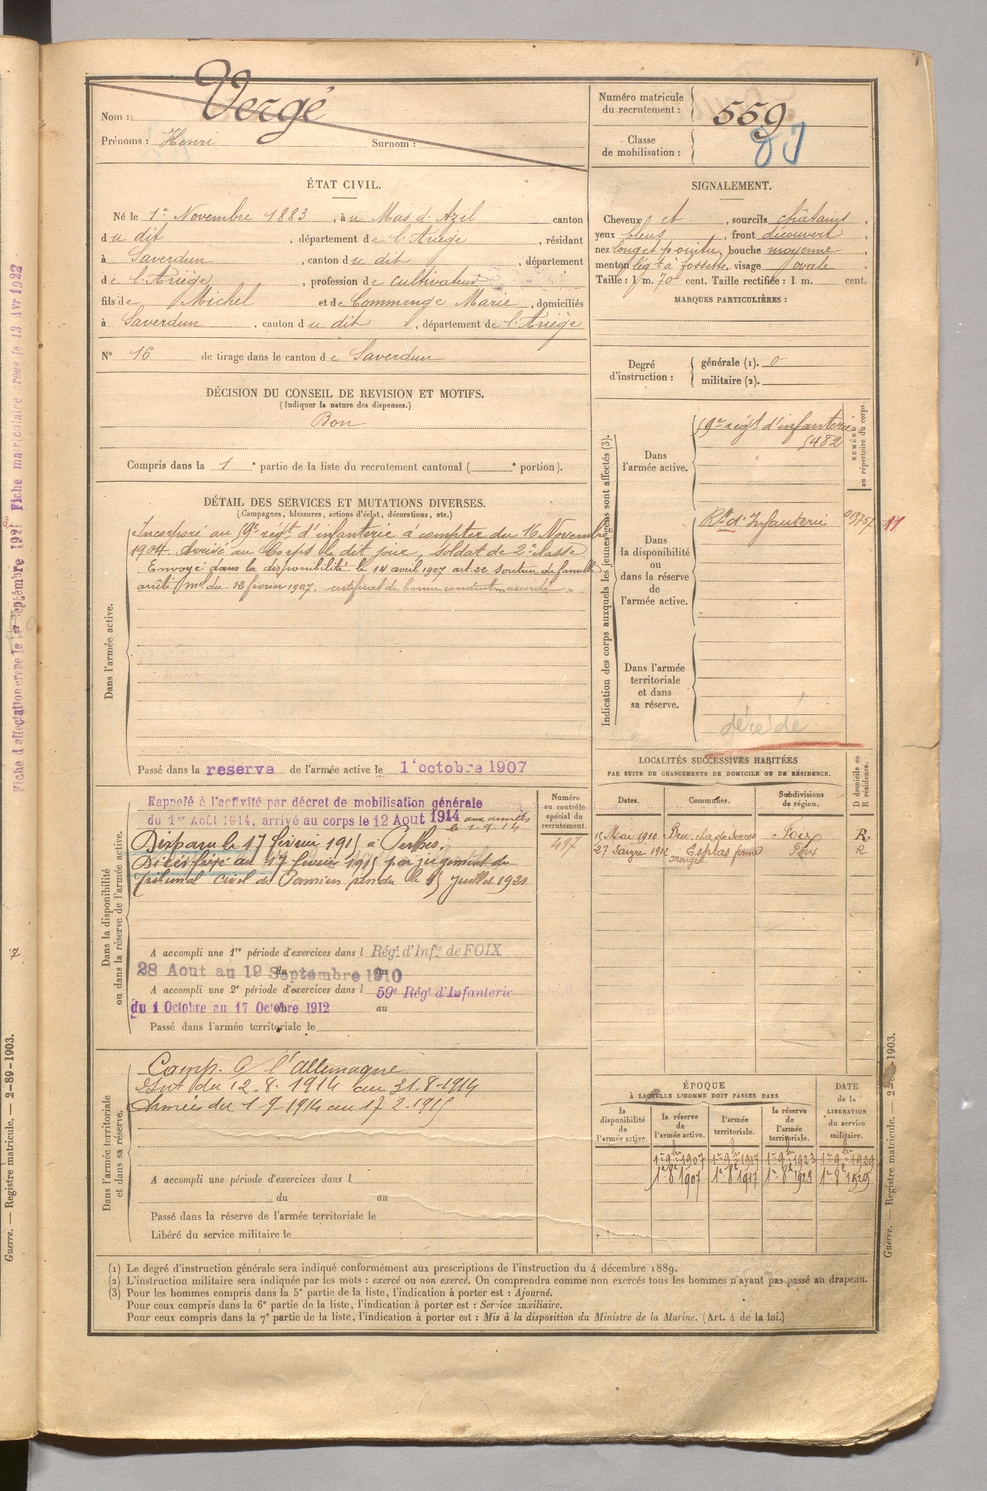 Nom : Vergé
Prénoms : Henri Surnom :
Numéro matricule du recrutement : 559
Classe de mobilisation : 03
ÉTAT CIVIL.
Né le 1er Novembre 1883, à u Mas d'Azil canton
du dit, département de l'Ariège, résidant
à Saverdun, canton du dit, département
de l'Ariège, profession de cultivateur
fils de Michel et de Commenge Marie, domiciliés
à Saverdun, canton du dit, département de l'Ariège
N° 16 de tirage dans le canton de Saverdun
DÉCISION DU CONSEIL DE REVISION ET MOTIFS.
(Indiquer la nature des dispenses.)
Bon
Compris dans la 1e partie de la liste du recrutement cantonal ( e portion).
SIGNALEMENT.
Cheveux et , sourcils châtains,
yeux bleus, front découvert
nez long et pointu, bouche moyenne
menton à fossette, visage ovale
Taille : 1 m. 70 cent. Taille rectifiée : 1 m. cent.
MARQUES PARTICULIÈRES :
Degré d'instruction : générale (1). 0
militaire (2).
DÉTAIL DES SERVICES ET MUTATIONS DIVERSES.
(Campagnes, blessures, actions d'éclat, décorations, etc.)
Dans l'armée active.
Incorporé au régt d'infanterie à compter du 16 Novembre
1904. Arrivé au Corps le dit jour, soldat de 2e classe
Envoyé dans la disponibilité le 14 avril 1907 art. 22 soutien de famille
arrêté mel du 12 février 1907. certificat de bonne conduite accordé.
Passé dans la reserve de l'armée active le 1 octobre 1907
Indication des corps auxquels les jeunes gens sont affectés (3).
NUMÉRO au répertoire du corps.
Dans l'armée active.
régt d'infanterie
5482
Dans la disponibilité ou dans la réserve de l'armée active.
Rt d'Infanterie
Dans l'armée territoriale et dans sa réserve.
décédé
Dans la disponibilité ou dans la réserve de l'armée active.
Rappelé à l'activité par décret de mobilisation générale
du 1er Août 1914, arrivé au corps le 12 Aout 1914 aux armées
le 1.9.14
Disparu le 17 février 1915 à Perthes.
Décès fixé au 17 février 1915 par jugement du
Tribunal civil de Pamiers rendu le 15 juillet 1921
Numéro au contrôle spécial du recrutement.
497
A accompli une 1re période d'exercices dans l Régt d'Infie de FOIX
28 Aout au 19 Septembre 1910
A accompli une 2e période d'exercices dans l 59e Régt d'Infanterie
du 1 Octobre au 17 Octobre 1912 au
Passé dans l'armée territoriale le
LOCALITÉS SUCCESSIVES HABITÉES
PAR SUITE DE CHANGEMENTS DE DOMICILE OU DE RÉSIDENCE.
D domicile ou R résidence.
Dates. Communes. Subdivisions de région.
15 Mai 1910 Foix R.
27 1912 Esplas Foix R
Dans l'armée territoriale et dans sa réserve.
Camp. C l'Allemagne
Int du 12.8.1914 au 31.8.1914
Armées du 1.9.1914 au 17.2.1915
A accompli une période d'exercices dans l
du au
Passé dans la réserve de l'armée territoriale le
Libéré du service militaire le
ÉPOQUE
À LAQUELLE L'HOMME DOIT PASSER DANS
la disponibilité de l'armée active.
la réserve de l'armée active.
l'armée territoriale.
la réserve de l'armée territoriale.
DATE de la LIBÉRATION du service militaire.
(1) Le degré d'instruction générale sera indiqué conformément aux prescriptions de l'instruction du 4 décembre 1889.
(2) L'instruction militaire sera indiquée par les mots : exercé ou non exercé. On comprendra comme non exercés tous les hommes n'ayant pas passé au drapeau.
(3) Pour les hommes compris dans la 5e partie de la liste, l'indication à porter est : Ajourné.
Pour ceux compris dans la 6e partie de la liste, l'indication à porter est : Service auxiliaire.
Pour ceux compris dans la 7e partie de la liste, l'indication à porter est : Mis à la disposition du Ministre de la Marine. (Art. 4 de la loi.)
Guerre. — Registre matricule. — 2-89-1903.
Guerre. — Registre matricule. — 2-89-1903.